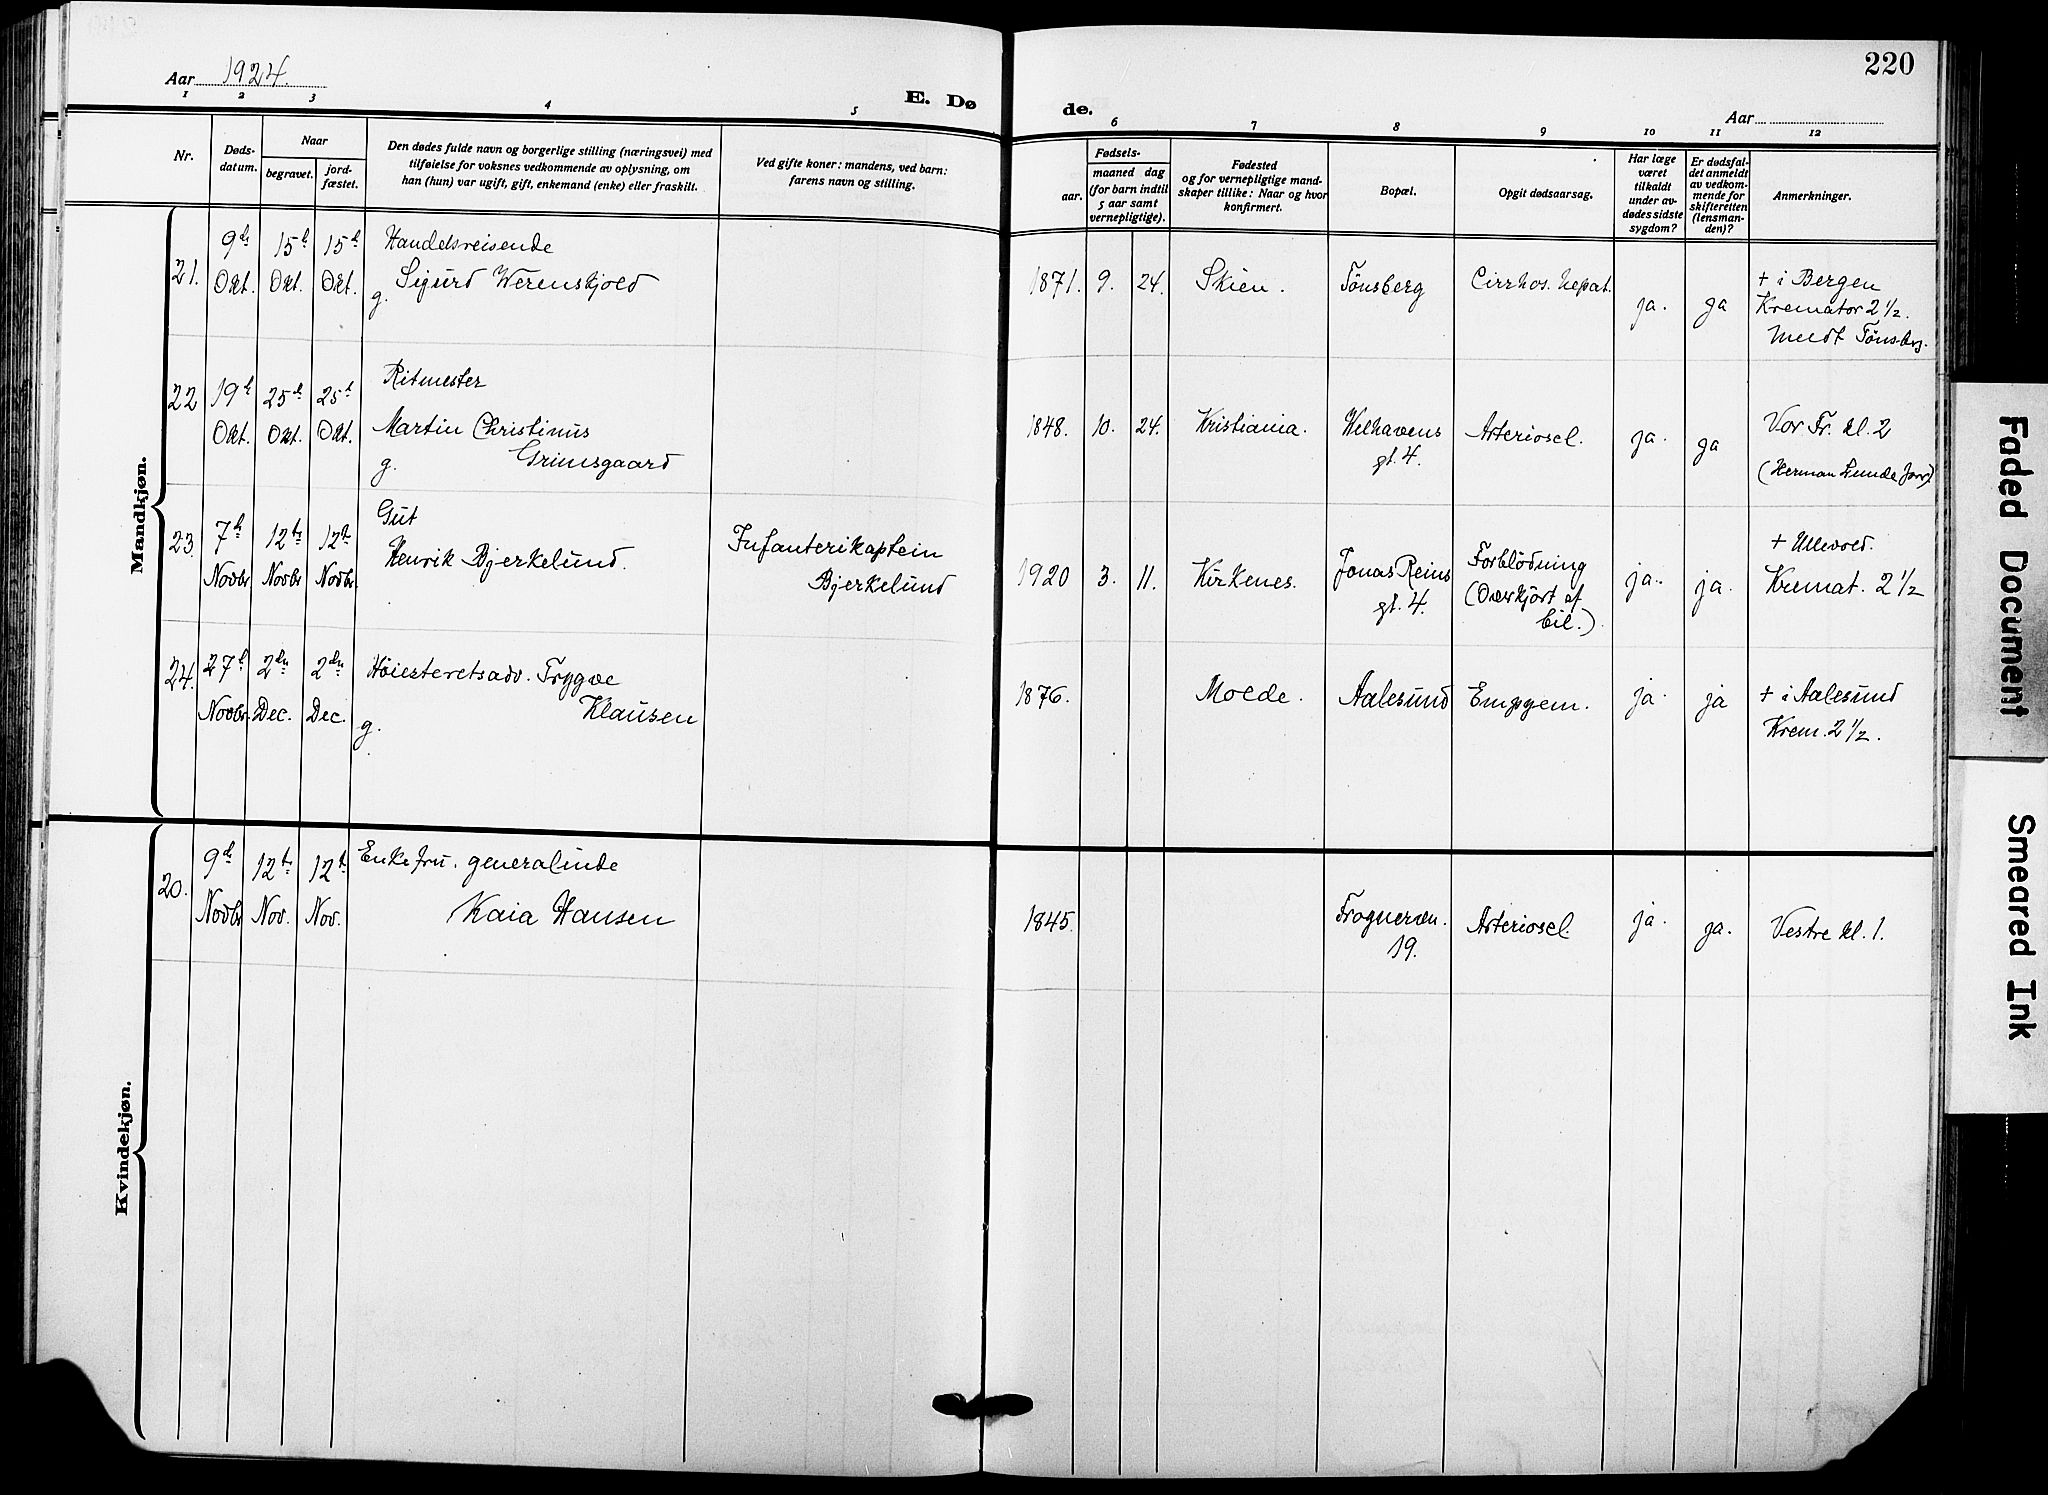 220
Aar 1924.
E. Dø
de.
Aar
1 2 3 4 5 6 7 8 9 10 11 12
Nr.
Døds-
datum.
Naar
begravet.
jord-
fæstet.
Den dødes fulde navn og borgerlige stilling (næringsvei) med
tilføielse for voksnes vedkommende av oplysning, om
han (hun) var ugift, gift, enkemand (enke) eller fraskilt.
Ved gifte koner: mandens, ved barn:
farens navn og stilling.
Fødsels-
aar.
maaned dag
(for barn indtil
5 aar samt
vernepligtige).
Fødested
og for vernepligtige mand-
skaper tillike: Naar og hvor
konfirmert.
Bopæl.
Opgit dødsaarsag.
Har læge
været
tilkaldt
under av-
dødes sidste
sygdom?
Er dødsfal-
det anmeldt
av vedkom-
mende for
skifteretten
(lensman-
den)?
Anmerkninger.
Mandkjøn.
21.
9de
Okt.
15de
Okt.
15de
Okt.
Handelsreisende
Sigurd Werenskjold
g.
1871. 9. 24.
Skien.
Tönsberg
Cirrhos. hepat.
ja.
ja
+ i Bergen
Kremator 2 1/2.
Tönsberg.
22
19de
Okt.
25de
Okt.
25de
Okt.
Ritmester
Martin Christinus
g. Grimsgaard
1848. 10. 24.
Kristiania.
Welhavens
gt. 4.
Arterioscl.
ja.
ja
Vor Fr. kl. 2
(Herman Lunde
23.
7de
Novbr
12te
Novbr
12te
Novbr
Gut
Henrik Bjerkelund.
Infanterikaptein
Bjerkelund
1920 3. 11.
Kirkenes.
Jonas Reins
gt. 4.
Forblödning
(Overkjört af
bil.)
ja.
ja.
+ Ullevold.
Kremat. 2 1/2
24.
27de
Novbr.
2den
Dec.
2den
Dec.
Höiesteretsadv. Trygve
Klausen
g.
1876.
Molde.
Aalesund
Empyem.
ja.
ja
+ i Aalesund
Krem. 2 1/2.
Kvindekjøn.
20.
9de
Novbr
12te
Nov.
12te
Nov.
Enkefru. generalinde
Kaia Hansen
1845.
Frogneraen.
19.
Arterioscl.
ja.
ja.
Vestre kl. 1.
Faded Document
Smeared Ink